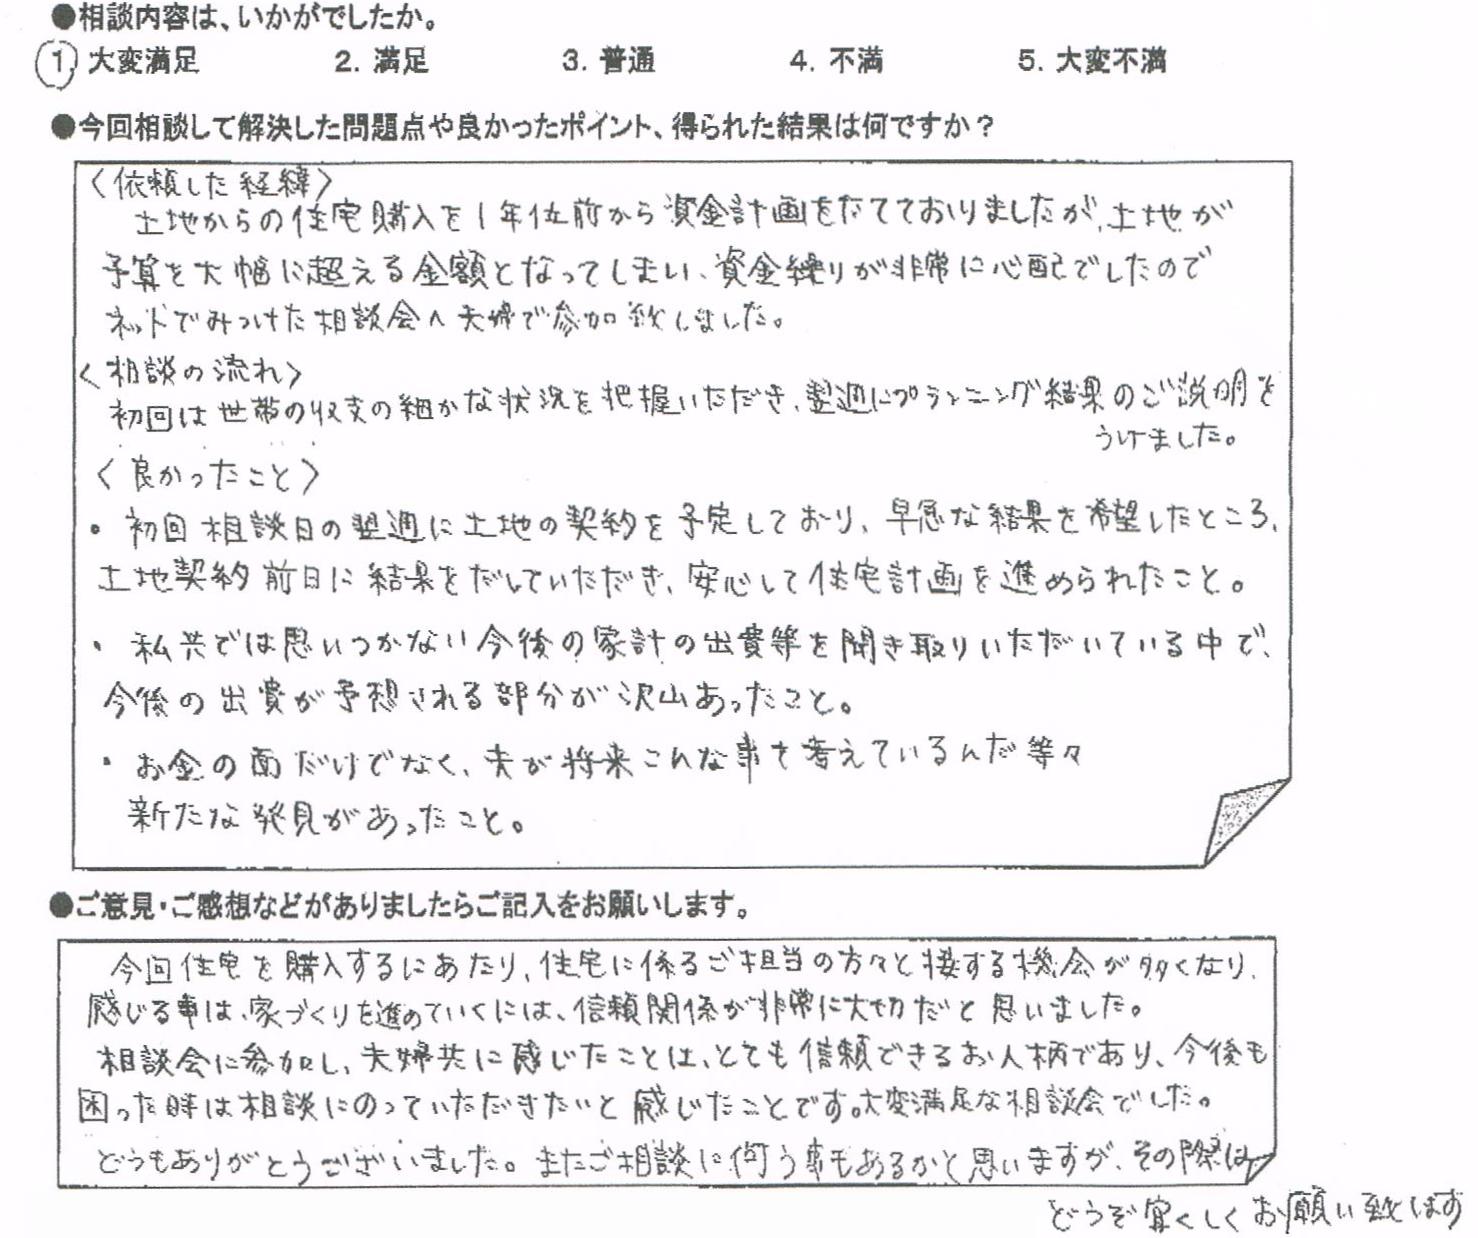 ●相談内容は、いかがでしたか。
1. 大変満足 2. 満足 3. 普通 4. 不満 5. 大変不満
●今回相談して解決した問題点や良かったポイント、得られた結果は何ですか？
〈依頼した経緯〉
土地からの住宅購入を1年位前から資金計画をたてておりましたが、土地が
予算を大幅に超える金額となってしまい、資金繰りが非常に心配でしたので
ネットでみつけた相談会へ夫婦で参加致しました。
〈相談の流れ〉
初回は世帯の収支の細かな状況を把握いただき、翌週にプランニング結果のご説明を
うけました。
〈良かったこと〉
・初回相談日の翌週に土地の契約を予定しており、早急な結果を希望したところ、
土地契約前日に結果をだしていただき、安心して住宅計画を進められたこと。
・私共では思いつかない今後の家計の出費等を聞き取りいただいている中で、
今後の出費が予想される部分が沢山あったこと。
・お金の面だけでなく、夫が将来こんな事を考えているんだ等々
新たな発見があったこと。
●ご意見・ご感想などがありましたらご記入をお願いします。
今回住宅を購入するにあたり、住宅に係るご担当の方々と接する機会が多くなり、
感じる事は、家づくりを進めていくには、信頼関係が非常に大切だと思いました。
相談会に参加し、夫婦共に感じたことは、とても信頼できるお人柄であり、今後も
困った時は相談にのっていただきたいと感じたことです。大変満足な相談会でした。
どうもありがとうございました。またご相談に伺う事もあるかと思いますが、その際は
どうぞ宜しくお願い致します